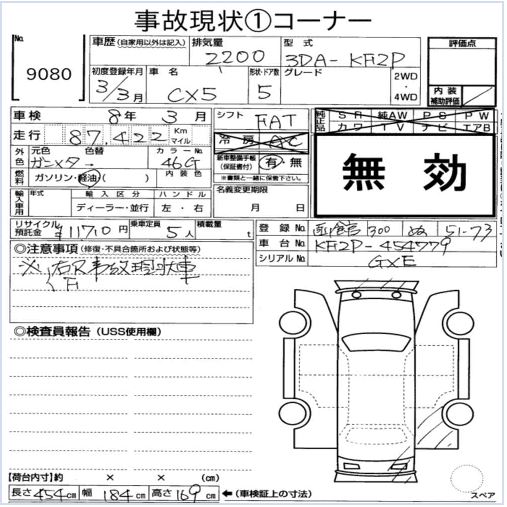 事故現状①コーナー
No.
9080
車歴 (自家用以外は記入)
排気量 2200
型式 3DA-KF2P
評価点
初度登録年月 3/3月
車名 CX5
形状・ドア数 5
グレード
2WD
・4WD
内装
補助評価
車検 8年 3月
シフト FAT
純正品 SR 純AW PS PW
カワ TV ナビ エアB
走行 87,422 Km マイル
冷房 AC
無効
外色 元色 ガンメタ 色替 カラーNo. 46G
新車整備手帳 (保証書付) 有・無
※書類と一緒に保管下さい。
燃料 ガソリン・軽油・( ) 内装色
名義変更期限
月 日
輸入車用 年式 輸入区分 ハンドル
ディーラー・並行 左・右
リサイクル預託金 ¥11710円 乗車定員 5人 積載量 t
登録No. 函館 300 ぬ 51-73
車台No. KF2P-454779
シリアルNo. GXE
◎注意事項 (修復・不具合箇所および状態等)
※右R事故現状車
◎検査員報告 (USS使用欄)
【荷台内寸】約 × × (cm)
長さ 454cm 幅 184cm 高さ 169cm ←(車検証上の寸法)
スペア